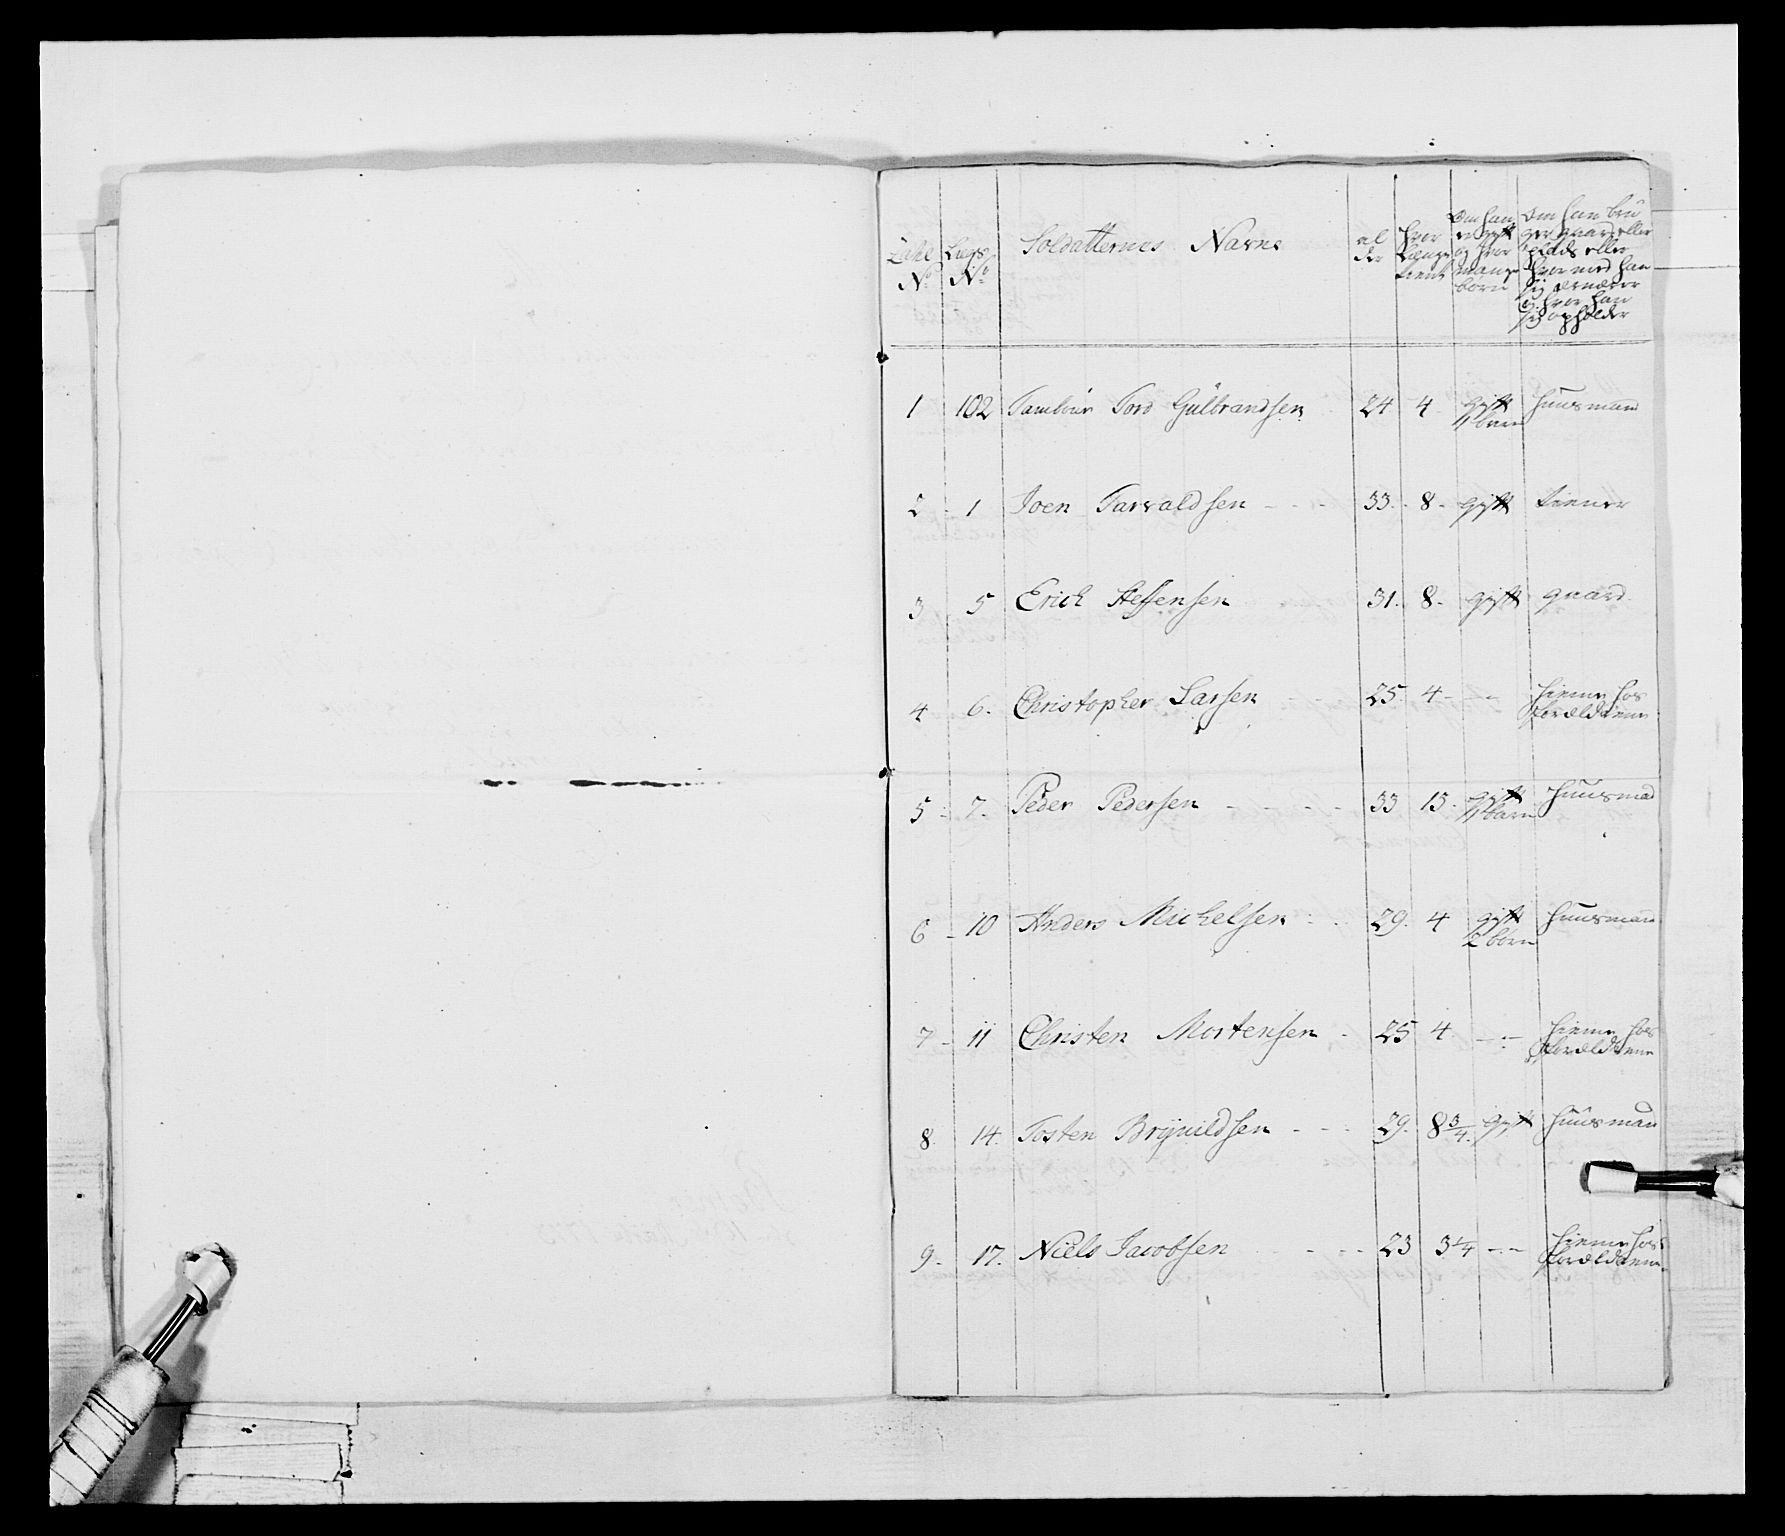 Zahl No
Lægs No
Soldatternes Navne
al der
hvor længe tient
Om han er gift og hvor mange børn
Om han bru ger gaard eller plads eller hvor med han sig ernærer og hvor han sig opholder
1 102 Tambour Tord Gulbrandsen 24 4 gift 1 barn huusmand
2 - 1 Joen Tarvaldsen - - - 33. 8 - gift tiener
3 5 Erich Steffensen 31. 8 - gift gaard
4 6. Christopher Larsen - - 25. 4 - - - hieme hos forældrene
5 - 7. Peder Pedersen - - - - 33 13. gift 1 barn huusmad
6 - 10 Anders Michelsen - - 29. 4 gift 2 børn huusmand
7 - 11 Christen Mortensen - 25 4 - - - hieme hos forældrene
8 14. Tosten Brynildsen - - - 29. 8 3/4. gift huusmand
9 - 17. Niels Jacobsen - - - - 23 3 1/4 - - - hieme hos forældrene